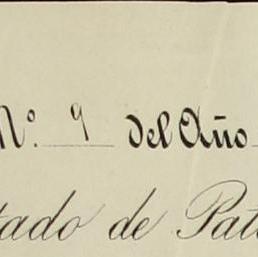 Nº 9 del Año
tado de Pat